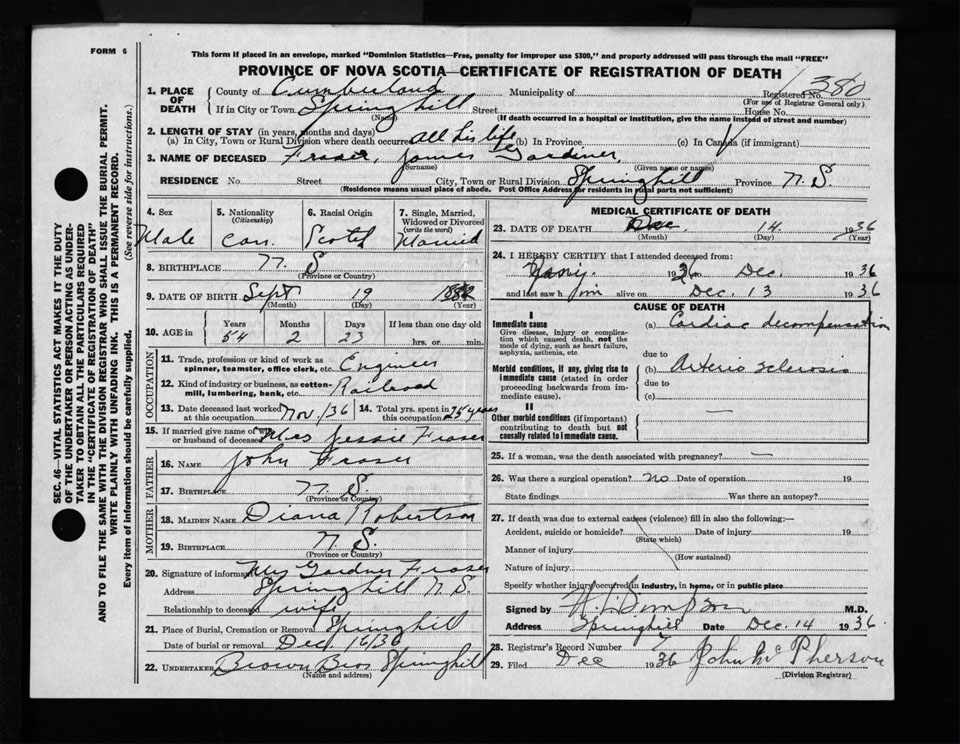 FORM 6
This form if placed in an envelope, marked "Dominion Statistics—Free, penalty for improper use $300," and properly addressed will pass through the mail "FREE"
PROVINCE OF NOVA SCOTIA—CERTIFICATE OF REGISTRATION OF DEATH
SEC. 46—VITAL STATISTICS ACT MAKES IT THE DUTY
OF THE UNDERTAKER OR PERSON ACTING AS UNDER-
TAKER TO OBTAIN ALL THE PARTICULARS REQUIRED
IN THE "CERTIFICATE OF REGISTRATION OF DEATH"
AND TO FILE THE SAME WITH THE DIVISION REGISTRAR WHO SHALL ISSUE THE BURIAL PERMIT.
WRITE PLAINLY WITH UNFADING INK. THIS IS A PERMANENT RECORD.
Every item of information should be carefully supplied. (See reverse side for instructions.)
1. PLACE OF DEATH County of Cumberland Municipality of Registered No. 380
(For use of Registrar General only)
If in City or Town Springhill Street House No.
(Name) (If death occurred in a hospital or institution, give the name instead of street and number)
2. LENGTH OF STAY (in years, months and days)
(a) In City, Town or Rural Division where death occurred all his life (b) In Province (c) In Canada (if immigrant)
3. NAME OF DECEASED Fraser, James Gardiner,
(Surname) (Given name or names)
RESIDENCE No. Street City, Town or Rural Division Springhill Province N. S.
(Residence means usual place of abode. Post Office Address for residents in rural parts not sufficient)
4. Sex 5. Nationality (Citizenship) 6. Racial Origin 7. Single, Married, Widowed or Divorced (write the word)
Male Can. Scotch Married
8. BIRTHPLACE N. S
(Province or Country)
9. DATE OF BIRTH Sept 19 1882
(Month) (Day) (Year)
10. AGE in Years Months Days If less than one day old
54 2 23 hrs. or min.
OCCUPATION
11. Trade, profession or kind of work as spinner, teamster, office clerk, etc. Engineer
12. Kind of industry or business, as cotton-mill, lumbering, bank, etc. Railroad
13. Date deceased last worked at this occupation Nov. /36 14. Total yrs. spent in this occupation 25 years
15. If married give name of wife or husband of deceased Mrs Jessie Fraser
FATHER
16. NAME John Fraser
17. BIRTHPLACE N. S.
(Province or Country)
MOTHER
18. MAIDEN NAME Diana Robertson
19. BIRTHPLACE N. S.
(Province or Country)
20. Signature of informant Mrs Gardner Fraser
Address Springhill N. S.
Relationship to deceased wife
21. Place of Burial, Cremation or Removal Springhill
Date of burial or removal Dec 16/36
22. UNDERTAKER Brown Bros Springhill
(Name and address)
MEDICAL CERTIFICATE OF DEATH
23. DATE OF DEATH Dec. 14 1936
(Month) (Day) (Year)
24. I HEREBY CERTIFY that I attended deceased from:
Jany. 1936 to Dec. 1936
and last saw him alive on Dec. 13 1936
CAUSE OF DEATH
I
Immediate cause (a) Cardiac decompensation
Give disease, injury or complication which caused death, not the mode of dying, such as heart failure, asphyxia, asthenia, etc
due to
Morbid conditions, if any, giving rise to immediate cause (stated in order proceeding backwards from immediate cause).
(b) Arterio sclerosis
due to
(c)
II
Other morbid conditions (if important) contributing to death but not causally related to immediate cause. —
25. If a woman, was the death associated with pregnancy? —
26. Was there a surgical operation? no Date of operation 19
State findings Was there an autopsy?
27. If death was due to external causes (violence) fill in also the following:—
Accident, suicide or homicide? Date of injury 19
(State which)
Manner of injury
(How sustained)
Nature of injury
Specify whether injury occurred in industry, in home, or in public place
Signed by M.D.
Address Springhill Date Dec. 14 1936.
28. Registrar's Record Number
29. Filed Dec 1936 John McPherson
(Division Registrar)